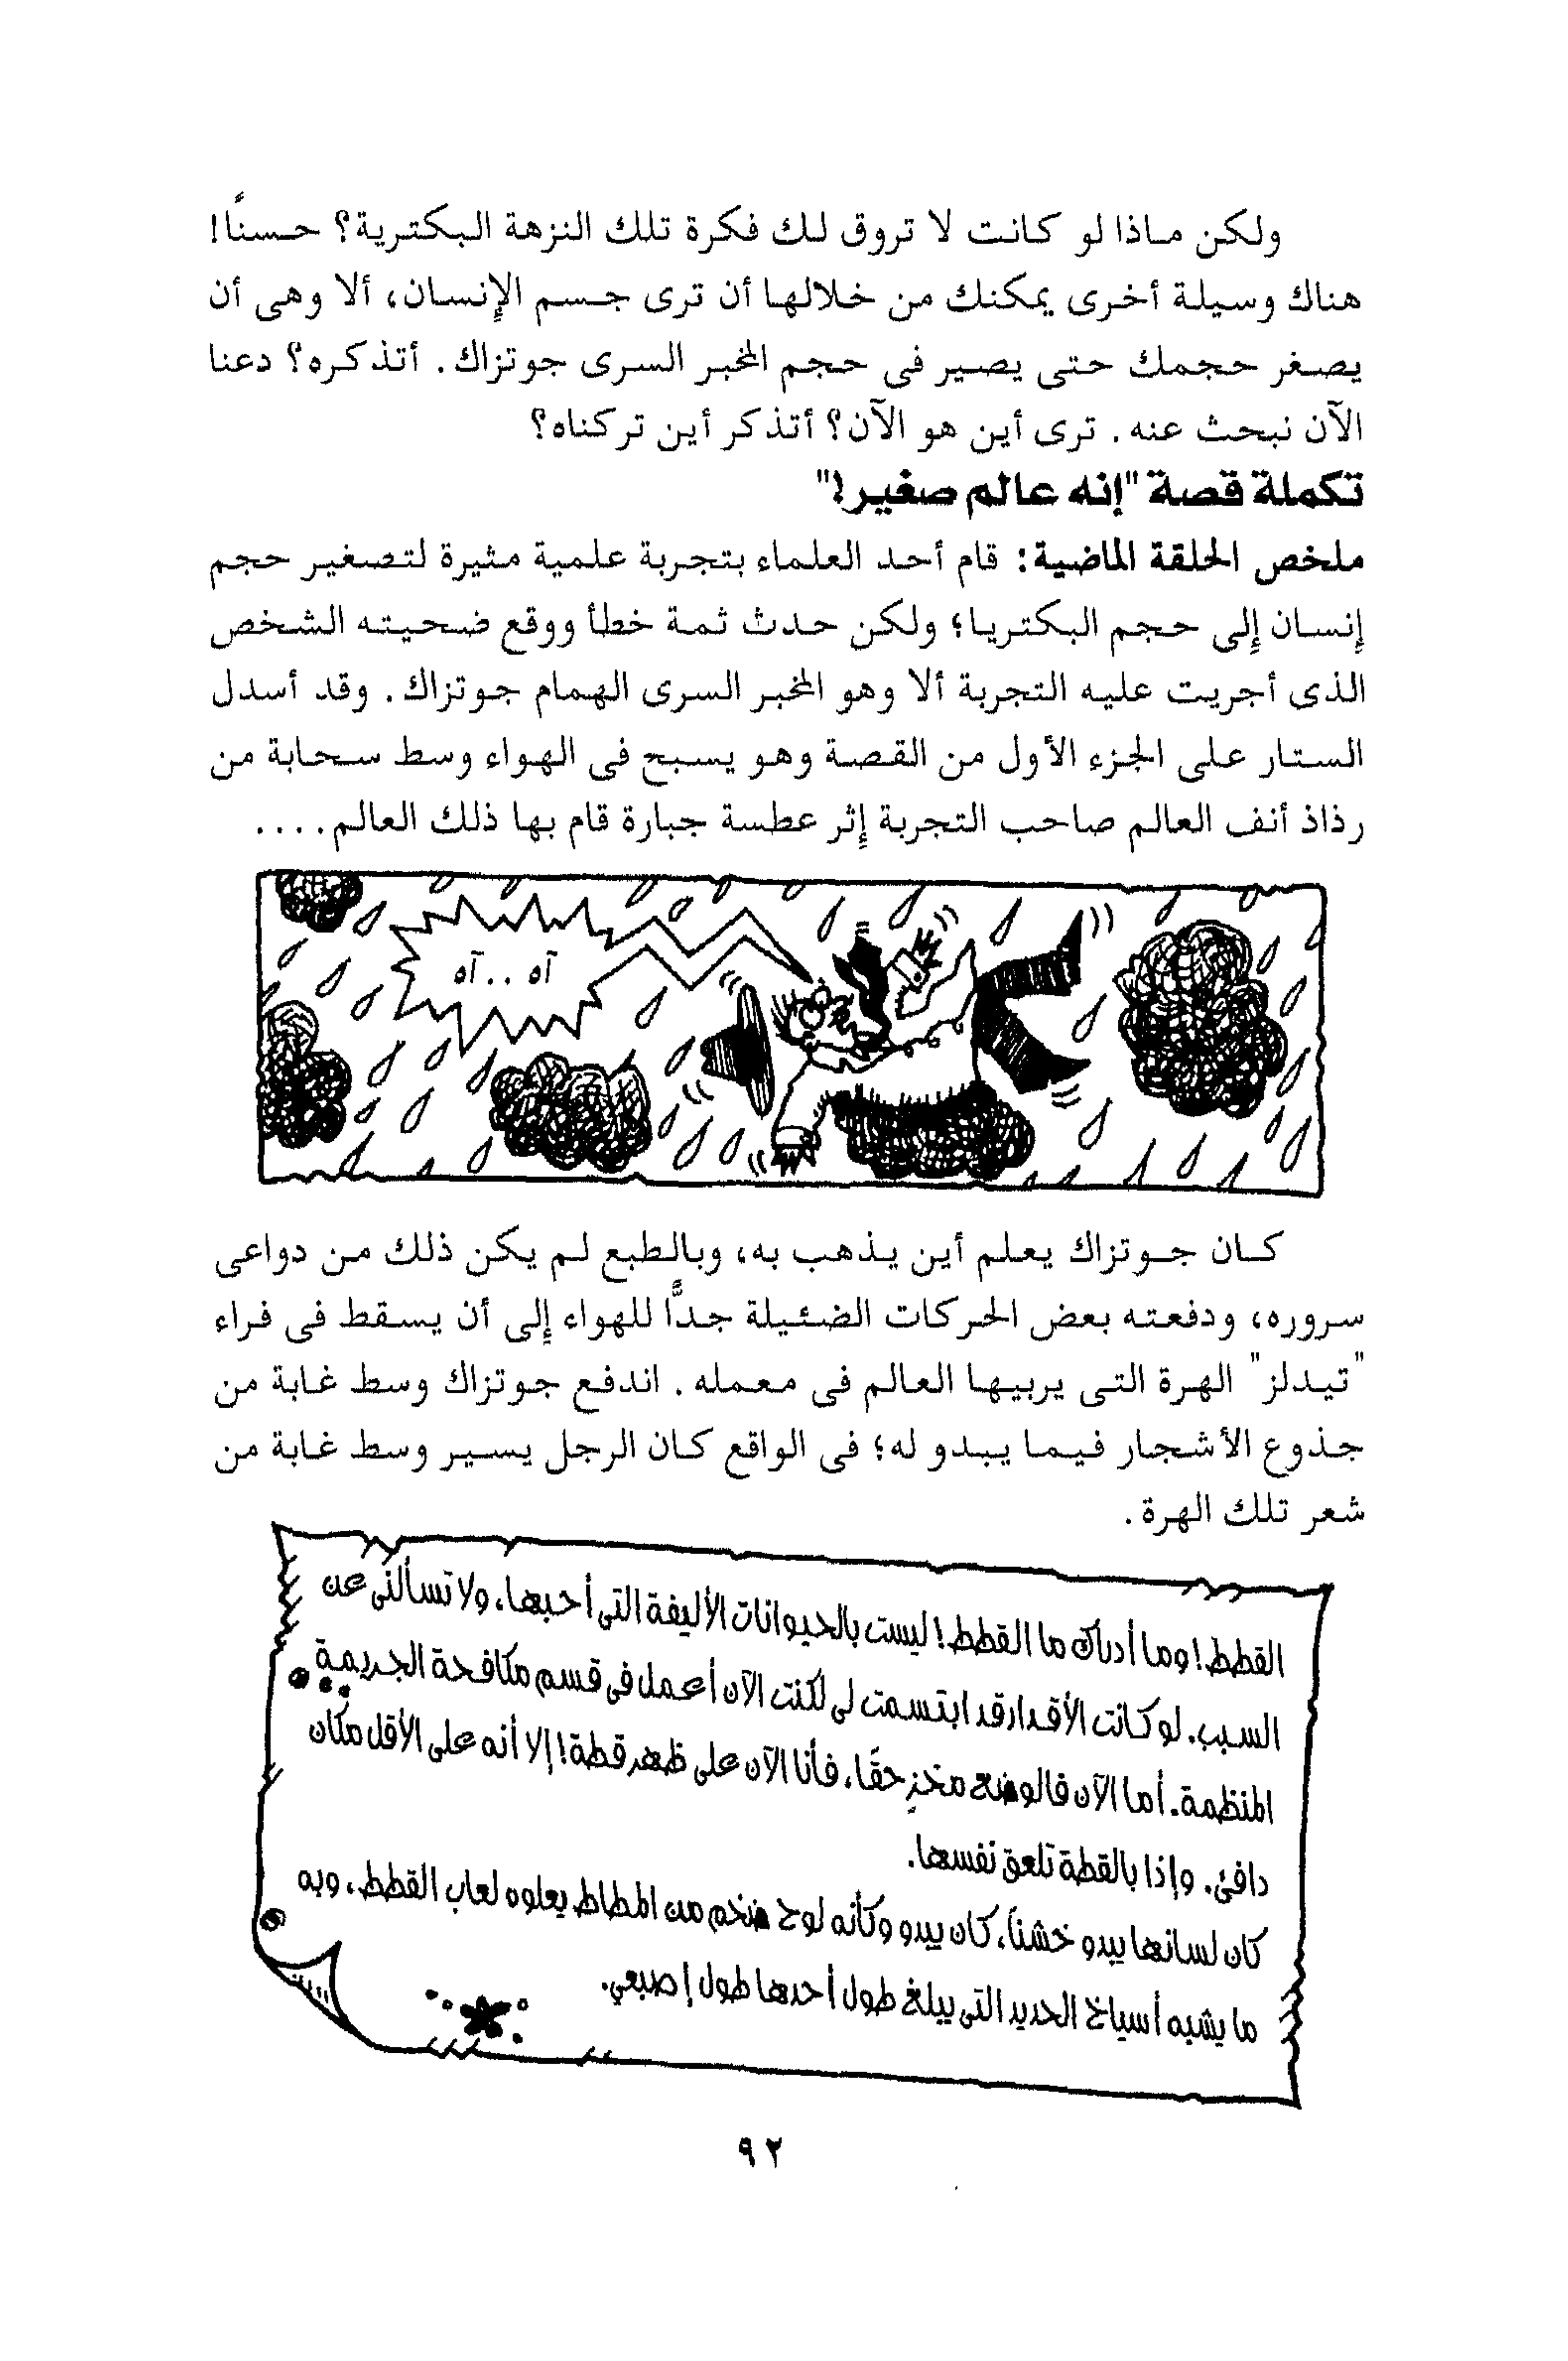 ولكن ماذا لو كانت لا تروق لك فكرة تلك النزهة البكترية؟ حسنًا!
هناك وسيلة أخرى يمكنك من خلالها أن ترى جسم الإنسان، ألا وهى أن
يصغر حجمك حتى يصير فى حجم المخبر السرى جوتزاك. أتذكره؟ دعنا
الآن نبحث عنه. ترى أين هو الآن؟ أتذكر أين تركناه؟
تكملة قصة "إنه عالم صغير!"
ملخص الحلقة الماضية: قام أحد العلماء بتجربة علمية مثيرة لتصغير حجم
إنسان إلى حجم البكتريا؛ ولكن حدث ثمة خطأ ووقع ضحيته الشخص
الذى أجريت عليه التجربة ألا وهو المخبر السرى الهمام جوتزاك. وقد أسدل
الستار على الجزء الأول من القصة وهو يسبح فى الهواء وسط سحابة من
رذاذ أنف العالم صاحب التجربة إثر عطسة جبارة قام بها ذلك العالم....
آه ..آه
كان جوتزاك يعلم أين يذهب به، وبالطبع لم يكن ذلك من دواعى
سروره، ودفعته بعض الحركات الضئيلة جدًّا للهواء إلى أن يسقط فى فراء
"تيدلز" الهرة التى يربيها العالم فى معمله. اندفع جوتزاك وسط غابة من
جذوع الأشجار فيما يبدو له؛ فى الواقع كان الرجل يسير وسط غابة من
شعر تلك الهرة.
القطط! وما أدراك ما القطط! ليست بالحيوانات الأليفة التى أحبها، ولا تسألنى عن
السبب. لو كانت الأقدار قد ابتسمت لى لكنت الآن أعمل فى قسم مكافحة الجريمة
المنظمة. أما الآن فالوضع مخزٍ حقًا، فأنا الآن على ظهر قطة! إلا أنه على الأقل مكان
دافئ. وإذا بالقطة تلعق نفسها.
كان لسانها يبدو خشنًا، كان يبدو وكأنه لوح ضخم من المطاط يعلوه لعاب القطط، وبه
ما يشبه أسياخ الحديد التى يبلغ طول أحدها طول إصبعي.
٩٢